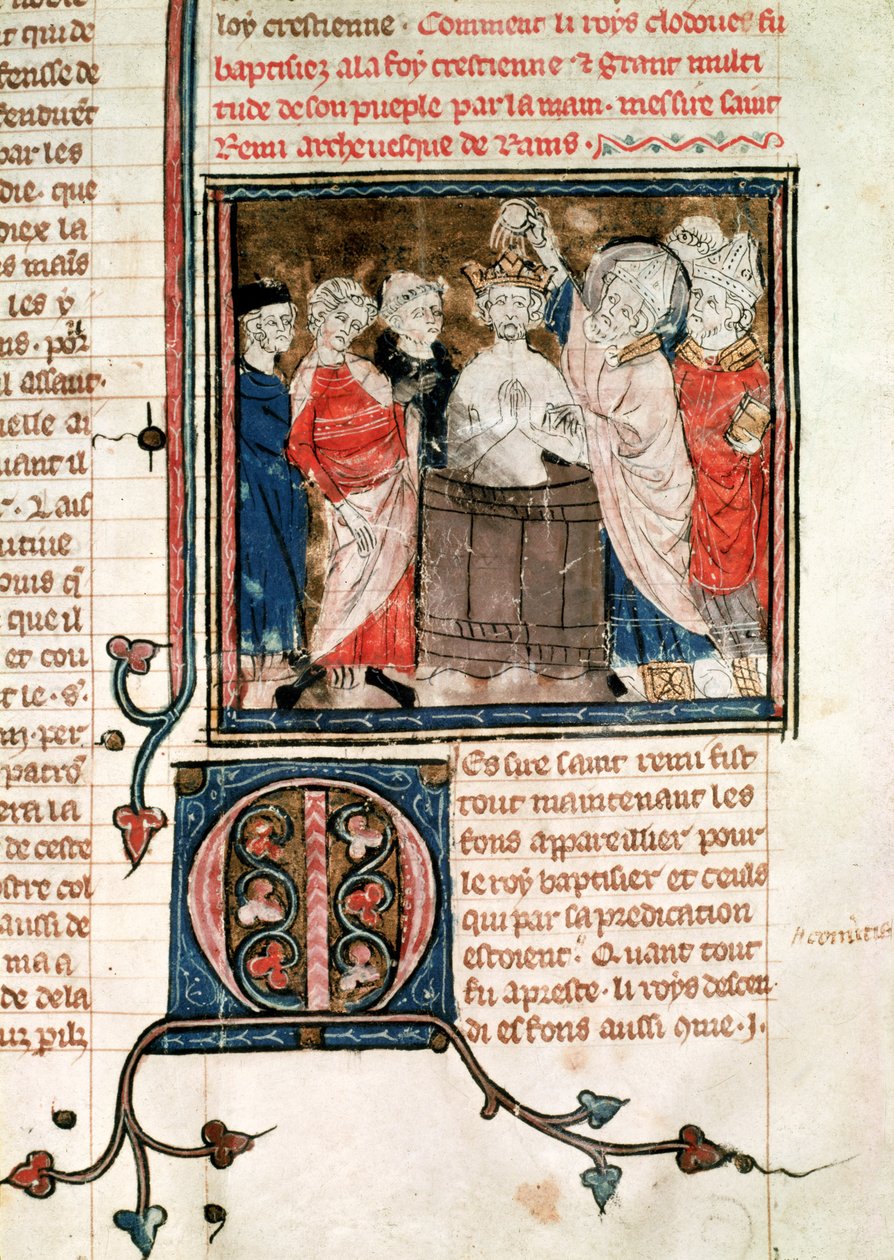 t qui de
fenisse de
par les
die. que
diex la
les y
ul assaut.
uant il
que il
et cou
t le. s.
per
de ceste
ostre col
aussi de
de dela
loy crestienne. Comment li roys clodoues fu
baptisiez a la foy crestienne. ⁊ grant multi
tude de son pueple par la main. messire saint
Remi archeuesque de Rains.
Messire saint remi fist
tout maintenant les
fons appareillier pour
le roy baptisier et ceuls
qui par sa predication
estoient. Quant tout
fu apreste. li roys descen
di es fons aussi que. j.